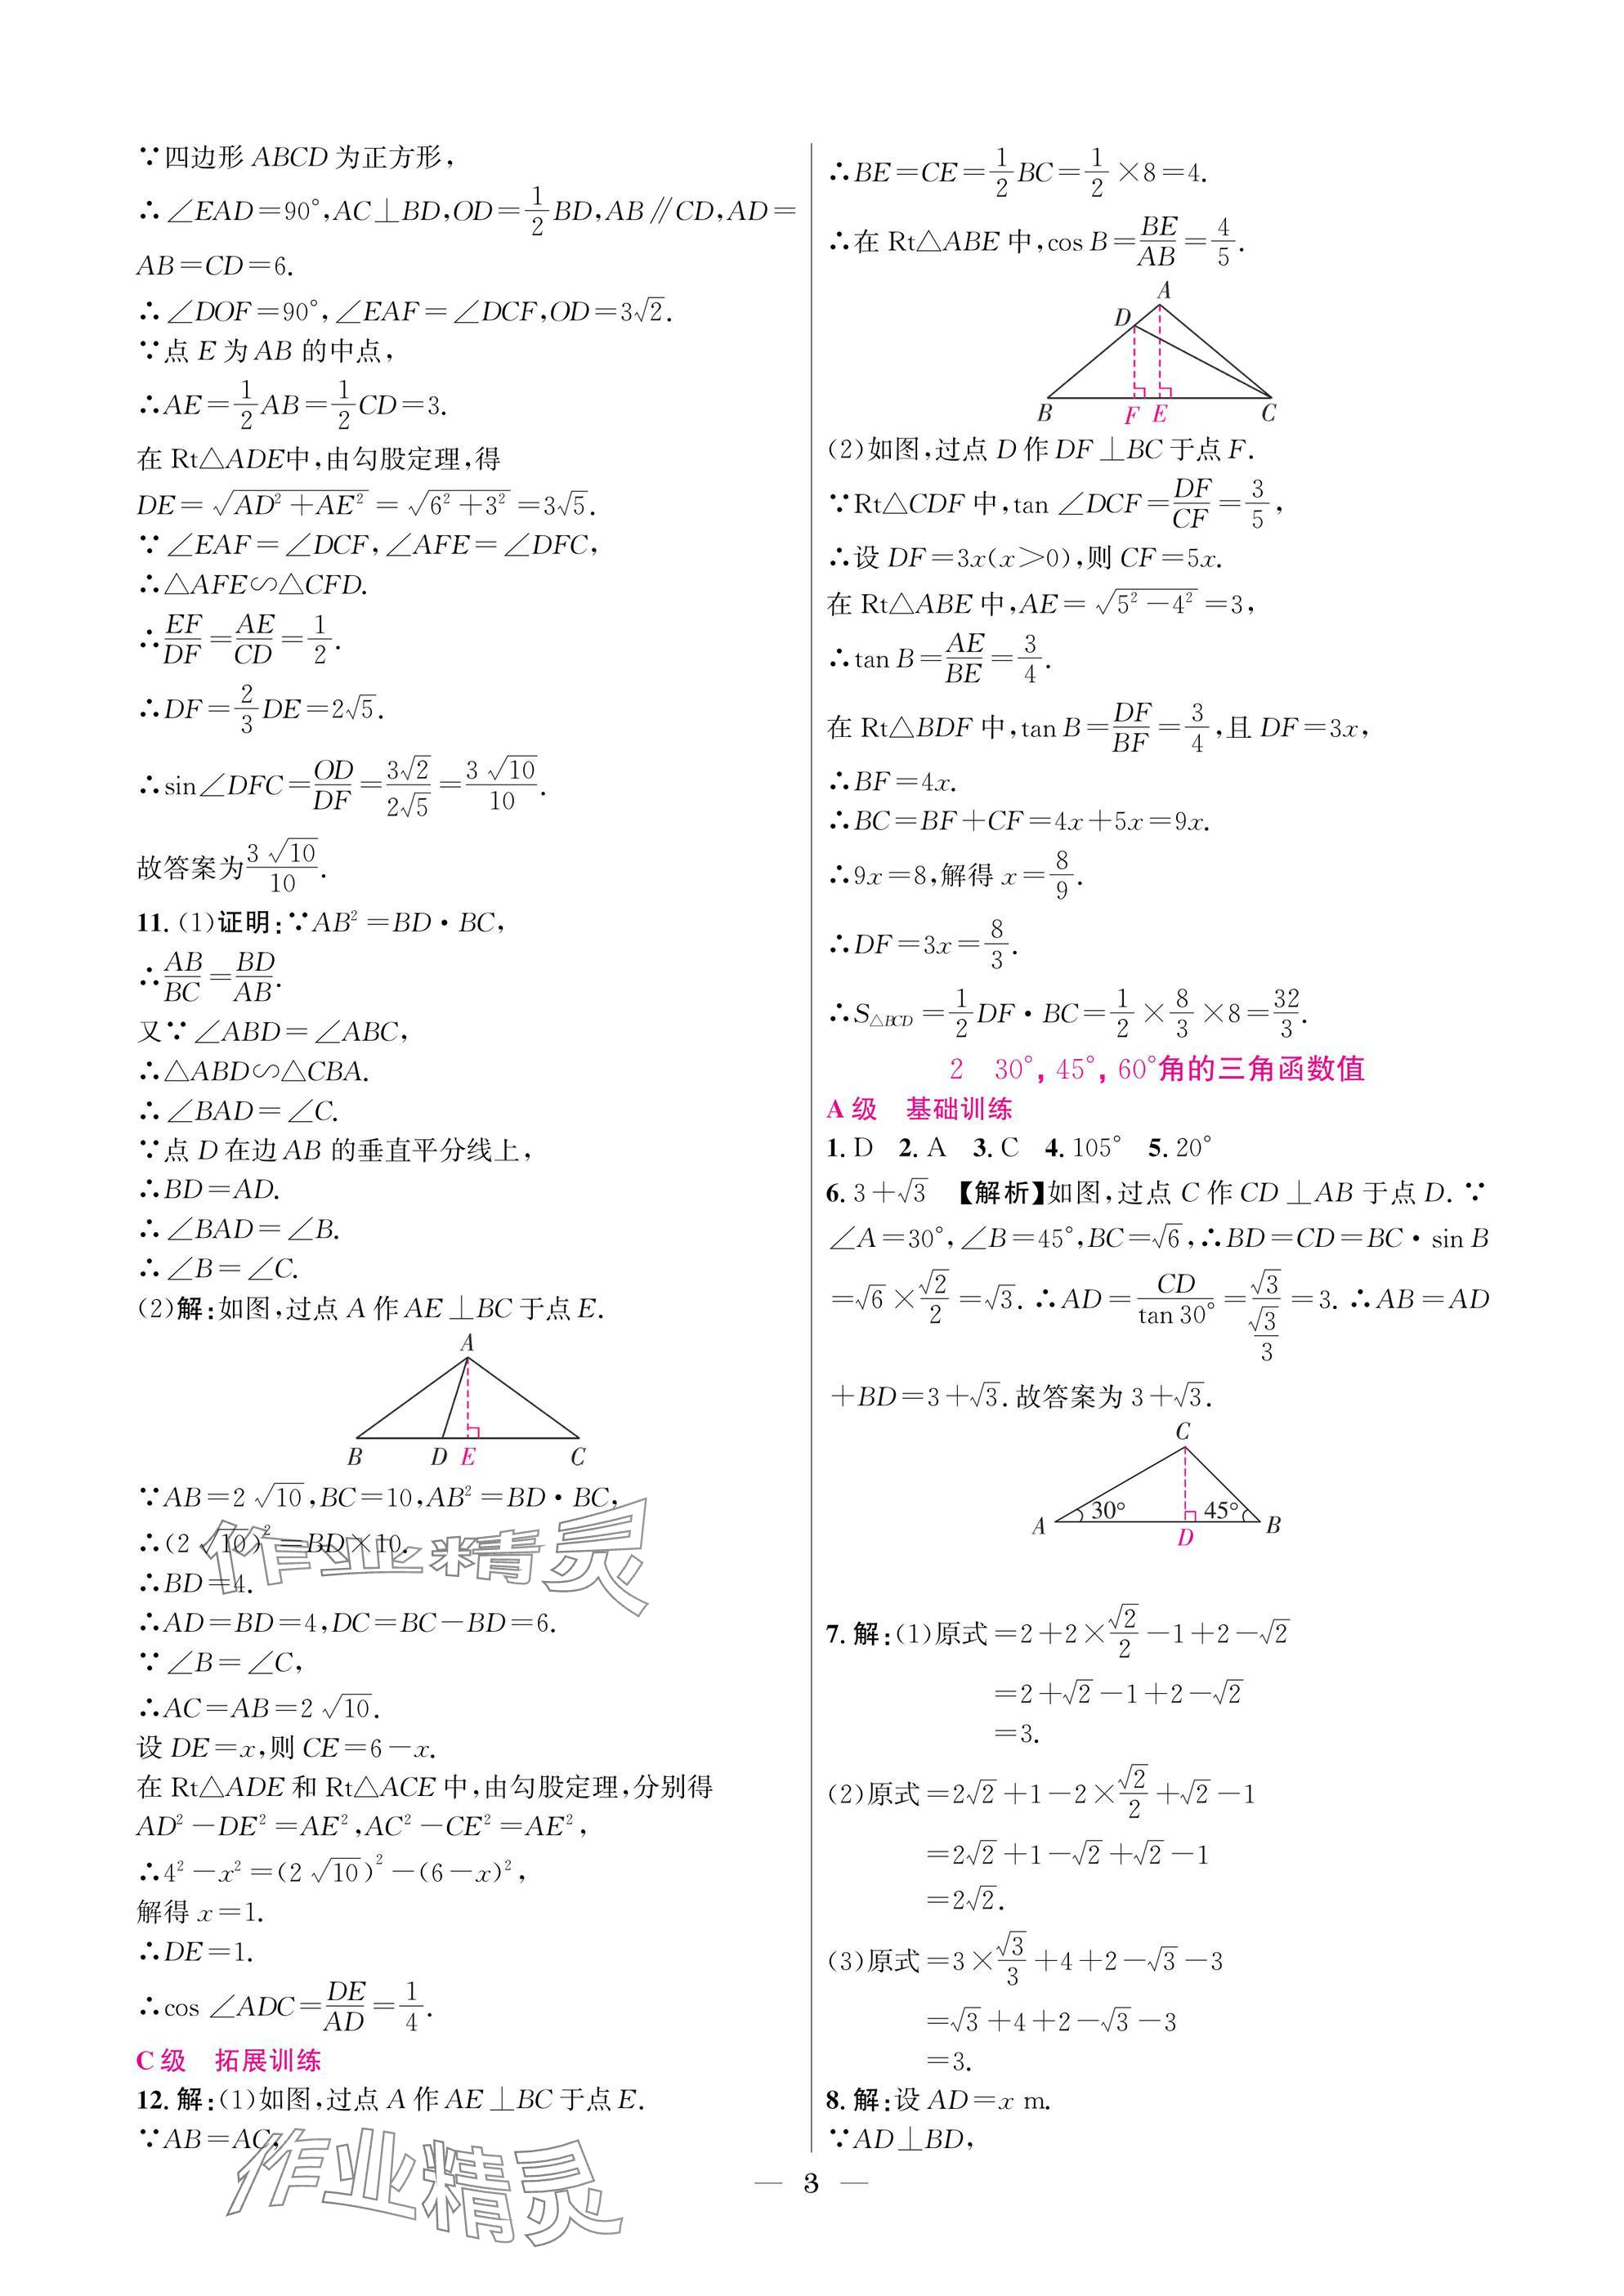 ∵四边形 ABCD 为正方形，
∴∠EAD=90°,AC⊥BD,OD=1/2BD,AB∥CD,AD=
AB=CD=6.
∴∠DOF=90°,∠EAF=∠DCF,OD=3√2.
∵点 E 为 AB 的中点，
∴AE=1/2AB=1/2CD=3.
在 Rt△ADE中,由勾股定理,得
DE=√(AD²+AE²)=√(6²+3²)=3√5.
∵∠EAF=∠DCF,∠AFE=∠DFC,
∴△AFE∽△CFD.
∴EF/DF=AE/CD=1/2.
∴DF=2/3DE=2√5.
∴sin∠DFC=OD/DF=3√2/2√5=3√10/10.
故答案为3√10/10.
11.(1)证明:∵AB²=BD·BC,
∴AB/BC=BD/AB.
又∵∠ABD=∠ABC,
∴△ABD∽△CBA.
∴∠BAD=∠C.
∵点 D 在边 AB 的垂直平分线上,
∴BD=AD.
∴∠BAD=∠B.
∴∠B=∠C.
(2)解:如图,过点 A 作 AE⊥BC 于点 E.
A
B D E C
∵AB=2√10,BC=10,AB²=BD·BC,
∴(2√10)²=BD×10.
∴BD=4.
作业精灵
∴AD=BD=4,DC=BC-BD=6.
∵∠B=∠C,
∴AC=AB=2√10.
设 DE=x,则 CE=6-x.
在 Rt△ADE 和 Rt△ACE 中,由勾股定理,分别得
AD²-DE²=AE²,AC²-CE²=AE²,
∴4²-x²=(2√10)²-(6-x)²,
解得 x=1.
∴DE=1.
∴cos∠ADC=DE/AD=1/4.
C 级 拓展训练
12.解:(1)如图,过点 A 作 AE⊥BC 于点 E.
∵AB=AC,
作业精灵
∴BE=CE=1/2BC=1/2×8=4.
∴在 Rt△ABE 中,cos B=BE/AB=4/5.
A
D
B F E C
(2)如图,过点 D 作 DF⊥BC 于点 F.
∵Rt△CDF 中,tan∠DCF=DF/CF=3/5,
∴设 DF=3x(x>0),则 CF=5x.
在 Rt△ABE 中,AE=√(5²-4²)=3,
∴tan B=AE/BE=3/4.
在 Rt△BDF 中,tan B=DF/BF=3/4,且 DF=3x,
∴BF=4x.
∴BC=BF+CF=4x+5x=9x.
∴9x=8,解得 x=8/9.
∴DF=3x=8/3.
∴S△BCD=1/2DF·BC=1/2×8/3×8=32/3.
2 30°,45°,60°角的三角函数值
A 级 基础训练
1.D 2.A 3.C 4.105° 5.20°
6.3+√3 【解析】如图,过点 C 作 CD⊥AB 于点 D.∵
∠A=30°,∠B=45°,BC=√6,∴BD=CD=BC·sin B
=√6×√2/2=√3.∴AD=CD/tan 30°=√3/(√3/3)=3.∴AB=AD
+BD=3+√3.故答案为 3+√3.
C
30° 45°
A D B
7.解:(1)原式=2+2×√2/2-1+2-√2
=2+√2-1+2-√2
=3.
(2)原式=2√2+1-2×√2/2+√2-1
=2√2+1-√2+√2-1
=2√2.
(3)原式=3×√3/3+4+2-√3-3
=√3+4+2-√3-3
=3.
8.解:设 AD=x m.
∵AD⊥BD,
— 3 —